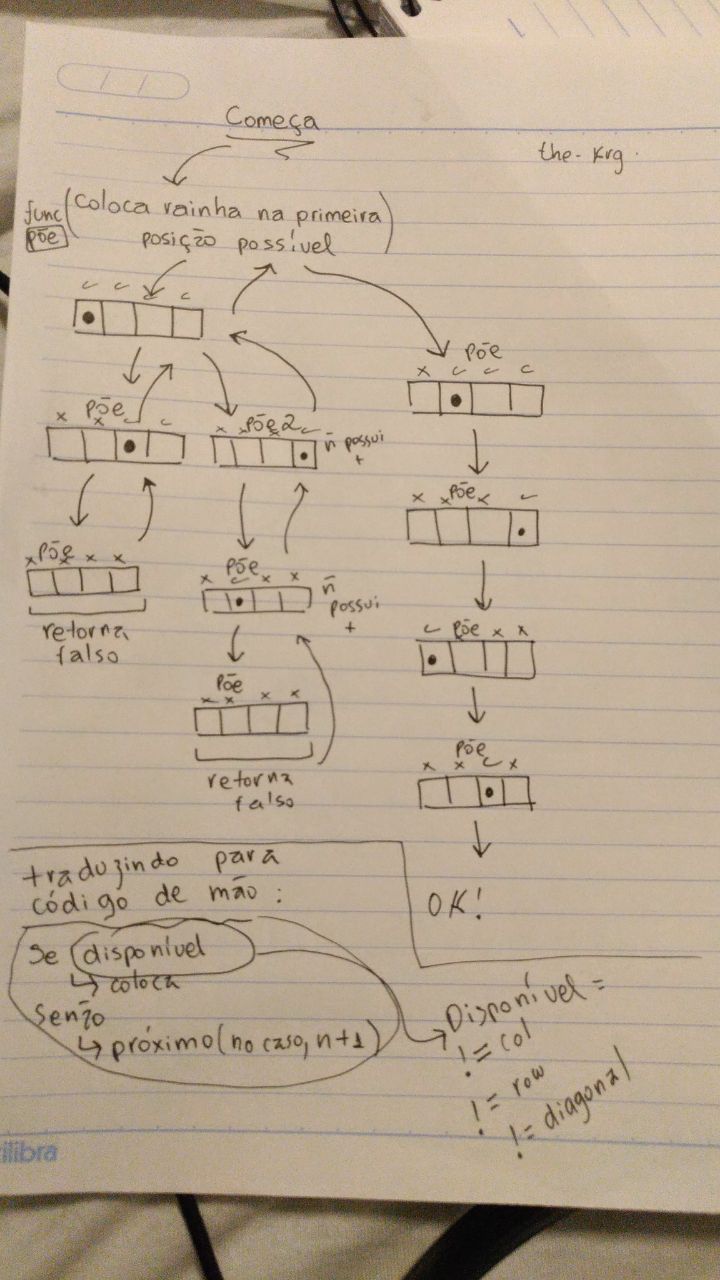 Começa
the-krg.
func
põe
(Coloca rainha na primeira
posição possível)
Põe
Põe
Põe 2
ñ possui
+
Põe
Põe
retorna
falso
Põe
ñ
possui
+
Põe
Põe
retorna
falso
Põe
OK!
traduzindo para
código de mão:
Se disponível
↳ coloca
Senão
↳ próximo (no caso, n+1)
Disponível =
!= col
!= row
!= diagonal
ilibra